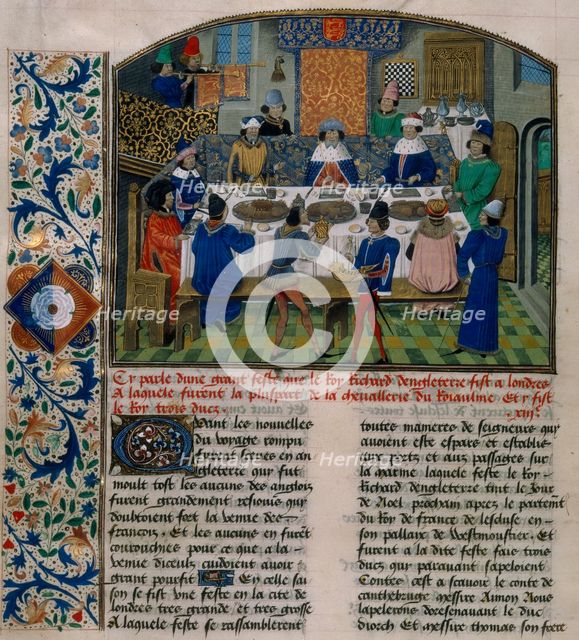 Cy parle dune grant feste que le Roy Richard dengleterre fist a londres
A laquele furent la pluspart de la chevallerie du Roiaulme Et y fist
le Roy trois ducz
Quant les nouvelles
du voyage rompu
furent sceves en an
gleterre il y eut
moult tost les aucuns des anglois
furent grandement resiouis qui
doubtoient fort la venue des
francois. Et les aucuns en furẽt
courouchies pour ce que a la
venue diceulx cuidoient avoir
grant pourfit En celle sai
son se fist une feste en la cite de
londres tres grande et tres grosse
A laquele feste se rassamblerent
toutes manieres de seigneurs qui
avoient este espars et establis
aux portz et aux passages sur
la marine laquele feste le Roy
Richard dengleterre tint le Jour
de Noel prochain apres le partemẽt
du Roy de france de lescluse en
son pallair de Westmoustier. Et
furent a la dite feste fais trois
ducz qui paravant sapeloient
Contes cest a scavoir le conte de
canthebruge messire Aimon Nous
lapelerons doresenavant le duc
diorch Et messire thomas son frere
Heritage
Heritage
Heritage
Heritage
Heritage
Heritage
Heritage
Heritage